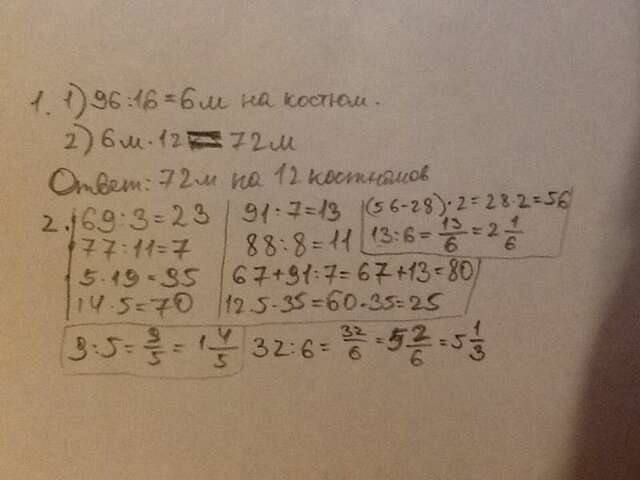 1. 1) 96:16=6м на костюм.
2) 6м·12=72м
Ответ: 72м на 12 костюмов
2. 69:3=23
77:11=7
5·19=95
14·5=70
91:7=13
88:8=11
67+91:7=67+13=80
12·5-35=60-35=25
(56-28)·2=28·2=56
13:6=13/6=2 1/6
9:5=9/5=1 4/5
32:6=32/6=5 2/6=5 1/3